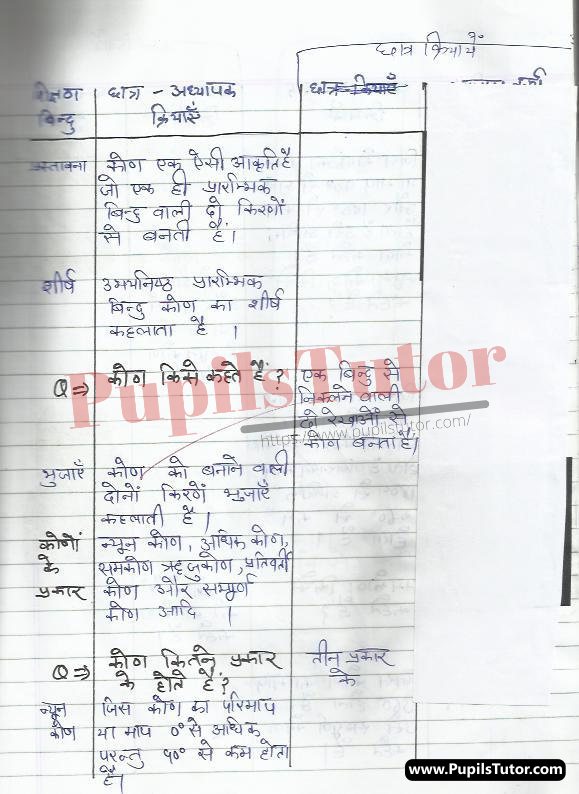 छात्र क्रियायें
शिक्षण बिन्दु
छात्र - अध्यापक क्रियाएँ
छात्र-क्रियाएँ
प्रस्तावना
कोण एक ऐसी आकृति है
जो एक ही प्रारम्भिक
बिन्दु वाली दो किरणों
से बनती हैं।
शीर्ष
उभयनिष्ठ प्रारम्भिक
बिन्दु कोण का शीर्ष
कहलाता है ।
Q ⇒ कोण किसे कहते हैं?
एक बिन्दु से
निकलने वाली
दो रेखाओं से
कोण बनता है।
PupilsTutor
https://www.pupilstutor.com/
भुजाएँ
कोण को बनाने वाली
दोनों किरणें भुजाएँ
कहलाती है।
कोणों के प्रकार
न्यून कोण, अधिक कोण,
समकोण ऋजुकोण, प्रतिवर्ती
कोण और सम्पूर्ण
कोण आदि ।
Q ⇒ कोण कितने प्रकार
के होते हैं?
तीन प्रकार
के
न्यून कोण
जिस कोण का परिमाप
या माप 0° से अधिक
परन्तु ९०° से कम होता
है।
www.PupilsTutor.com